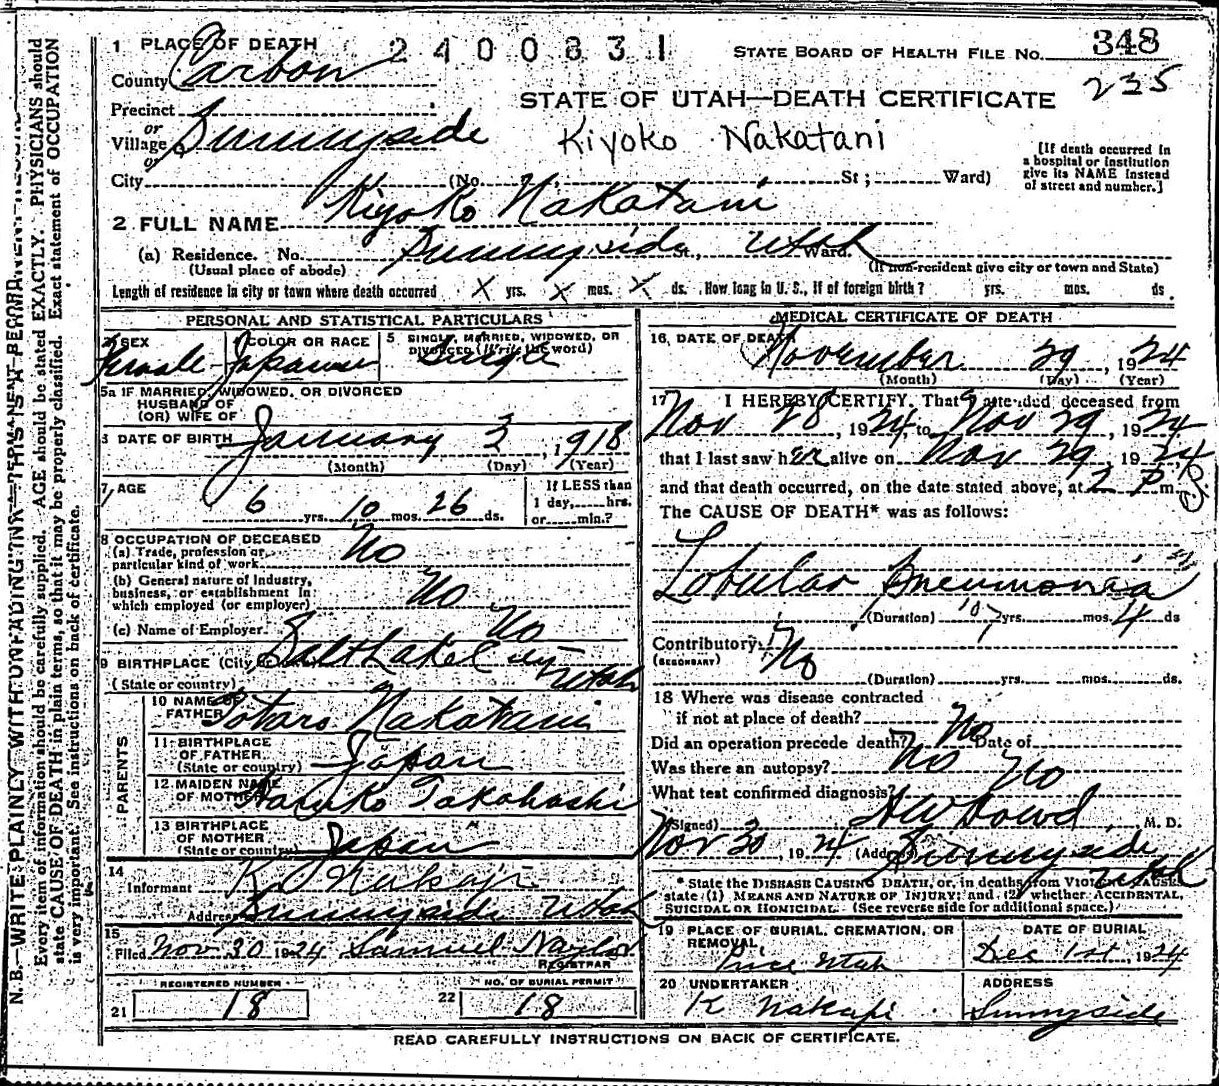 1 PLACE OF DEATH 2400831 STATE BOARD OF HEALTH FILE No. 348
County Carbon 235
STATE OF UTAH—DEATH CERTIFICATE
Precinct
or
Village Sunnyside Kiyoko Nakatani
or
City (No. St ; Ward)
[If death occurred in
a hospital or institution
give its NAME instead
of street and number.]
2 FULL NAME Kiyoko Nakatani
(a) Residence. No. Sunnyside St., Utah Ward.
(Usual place of abode) (If non-resident give city or town and State)
Length of residence in city or town where death occurred X yrs. X mos. X ds. How long in U. S., if of foreign birth? yrs. mos. ds.
PERSONAL AND STATISTICAL PARTICULARS
3 SEX Female
4 COLOR OR RACE Japanese
5 SINGLE, MARRIED, WIDOWED, OR
DIVORCED (Write the word) Single
5a IF MARRIED, WIDOWED, OR DIVORCED
HUSBAND OF
(OR) WIFE OF
6 DATE OF BIRTH January 3, 1918
(Month) (Day) (Year)
7 AGE 6 yrs. 10 mos. 26 ds.
If LESS than
1 day, hrs.
or min.?
8 OCCUPATION OF DECEASED
(a) Trade, profession or
particular kind of work No
(b) General nature of Industry,
business, or establishment in
which employed (or employer) No
(c) Name of Employer No
9 BIRTHPLACE (City or Salt Lake City
(State or country) Utah
PARENTS
10 NAME OF
FATHER Nakatani
11 BIRTHPLACE
OF FATHER
(State or country) Japan
12 MAIDEN NAME
OF MOTHER Takahashi
13 BIRTHPLACE
OF MOTHER
(State or country) Japan
14
Informant K. Nakaji
Address Sunnyside Utah
15
Filed Nov 30 1924 Samuel Naylor
REGISTRAR
REGISTERED NUMBER
21 18
NO. OF BURIAL PERMIT
22 18
MEDICAL CERTIFICATE OF DEATH
16. DATE OF DEATH November 29, 1924
(Month) (Day) (Year)
17 I HEREBY CERTIFY, That I attended deceased from
Nov 28, 1924, to Nov 29, 1924
that I last saw her alive on Nov 29, 1924
and that death occurred, on the date stated above, at 2 P m.
The CAUSE OF DEATH* was as follows:
Lobular Pneumonia
(Duration) yrs. mos. 4 ds
Contributory No
(SECONDARY)
(Duration) yrs. mos. ds.
18 Where was disease contracted
if not at place of death?
Did an operation precede death? No Date of
Was there an autopsy? No
What test confirmed diagnosis? No
(Signed) A W Dowd, M. D.
Nov 30, 1924 (Address) Sunnyside
Utah
* State the DISEASE CAUSING DEATH, or, in deaths from VIOLENT CAUSES,
state (1) MEANS AND NATURE OF INJURY; and (2) whether ACCIDENTAL,
SUICIDAL OR HOMICIDAL. (See reverse side for additional space.)
19 PLACE OF BURIAL, CREMATION, OR
REMOVAL, Price Utah
DATE OF BURIAL
Dec 1st, 1924
20 UNDERTAKER
K Nakaji
ADDRESS
Sunnyside
READ CAREFULLY INSTRUCTIONS ON BACK OF CERTIFICATE.
N. B.—WRITE PLAINLY WITH UNFADING INK—THIS IS A PERMANENT RECORD
Every item of information should be carefully supplied. AGE should be stated EXACTLY. PHYSICIANS should
state CAUSE OF DEATH in plain terms, so that it may be properly classified. Exact statement of OCCUPATION
is very important. See instructions on back of certificate.